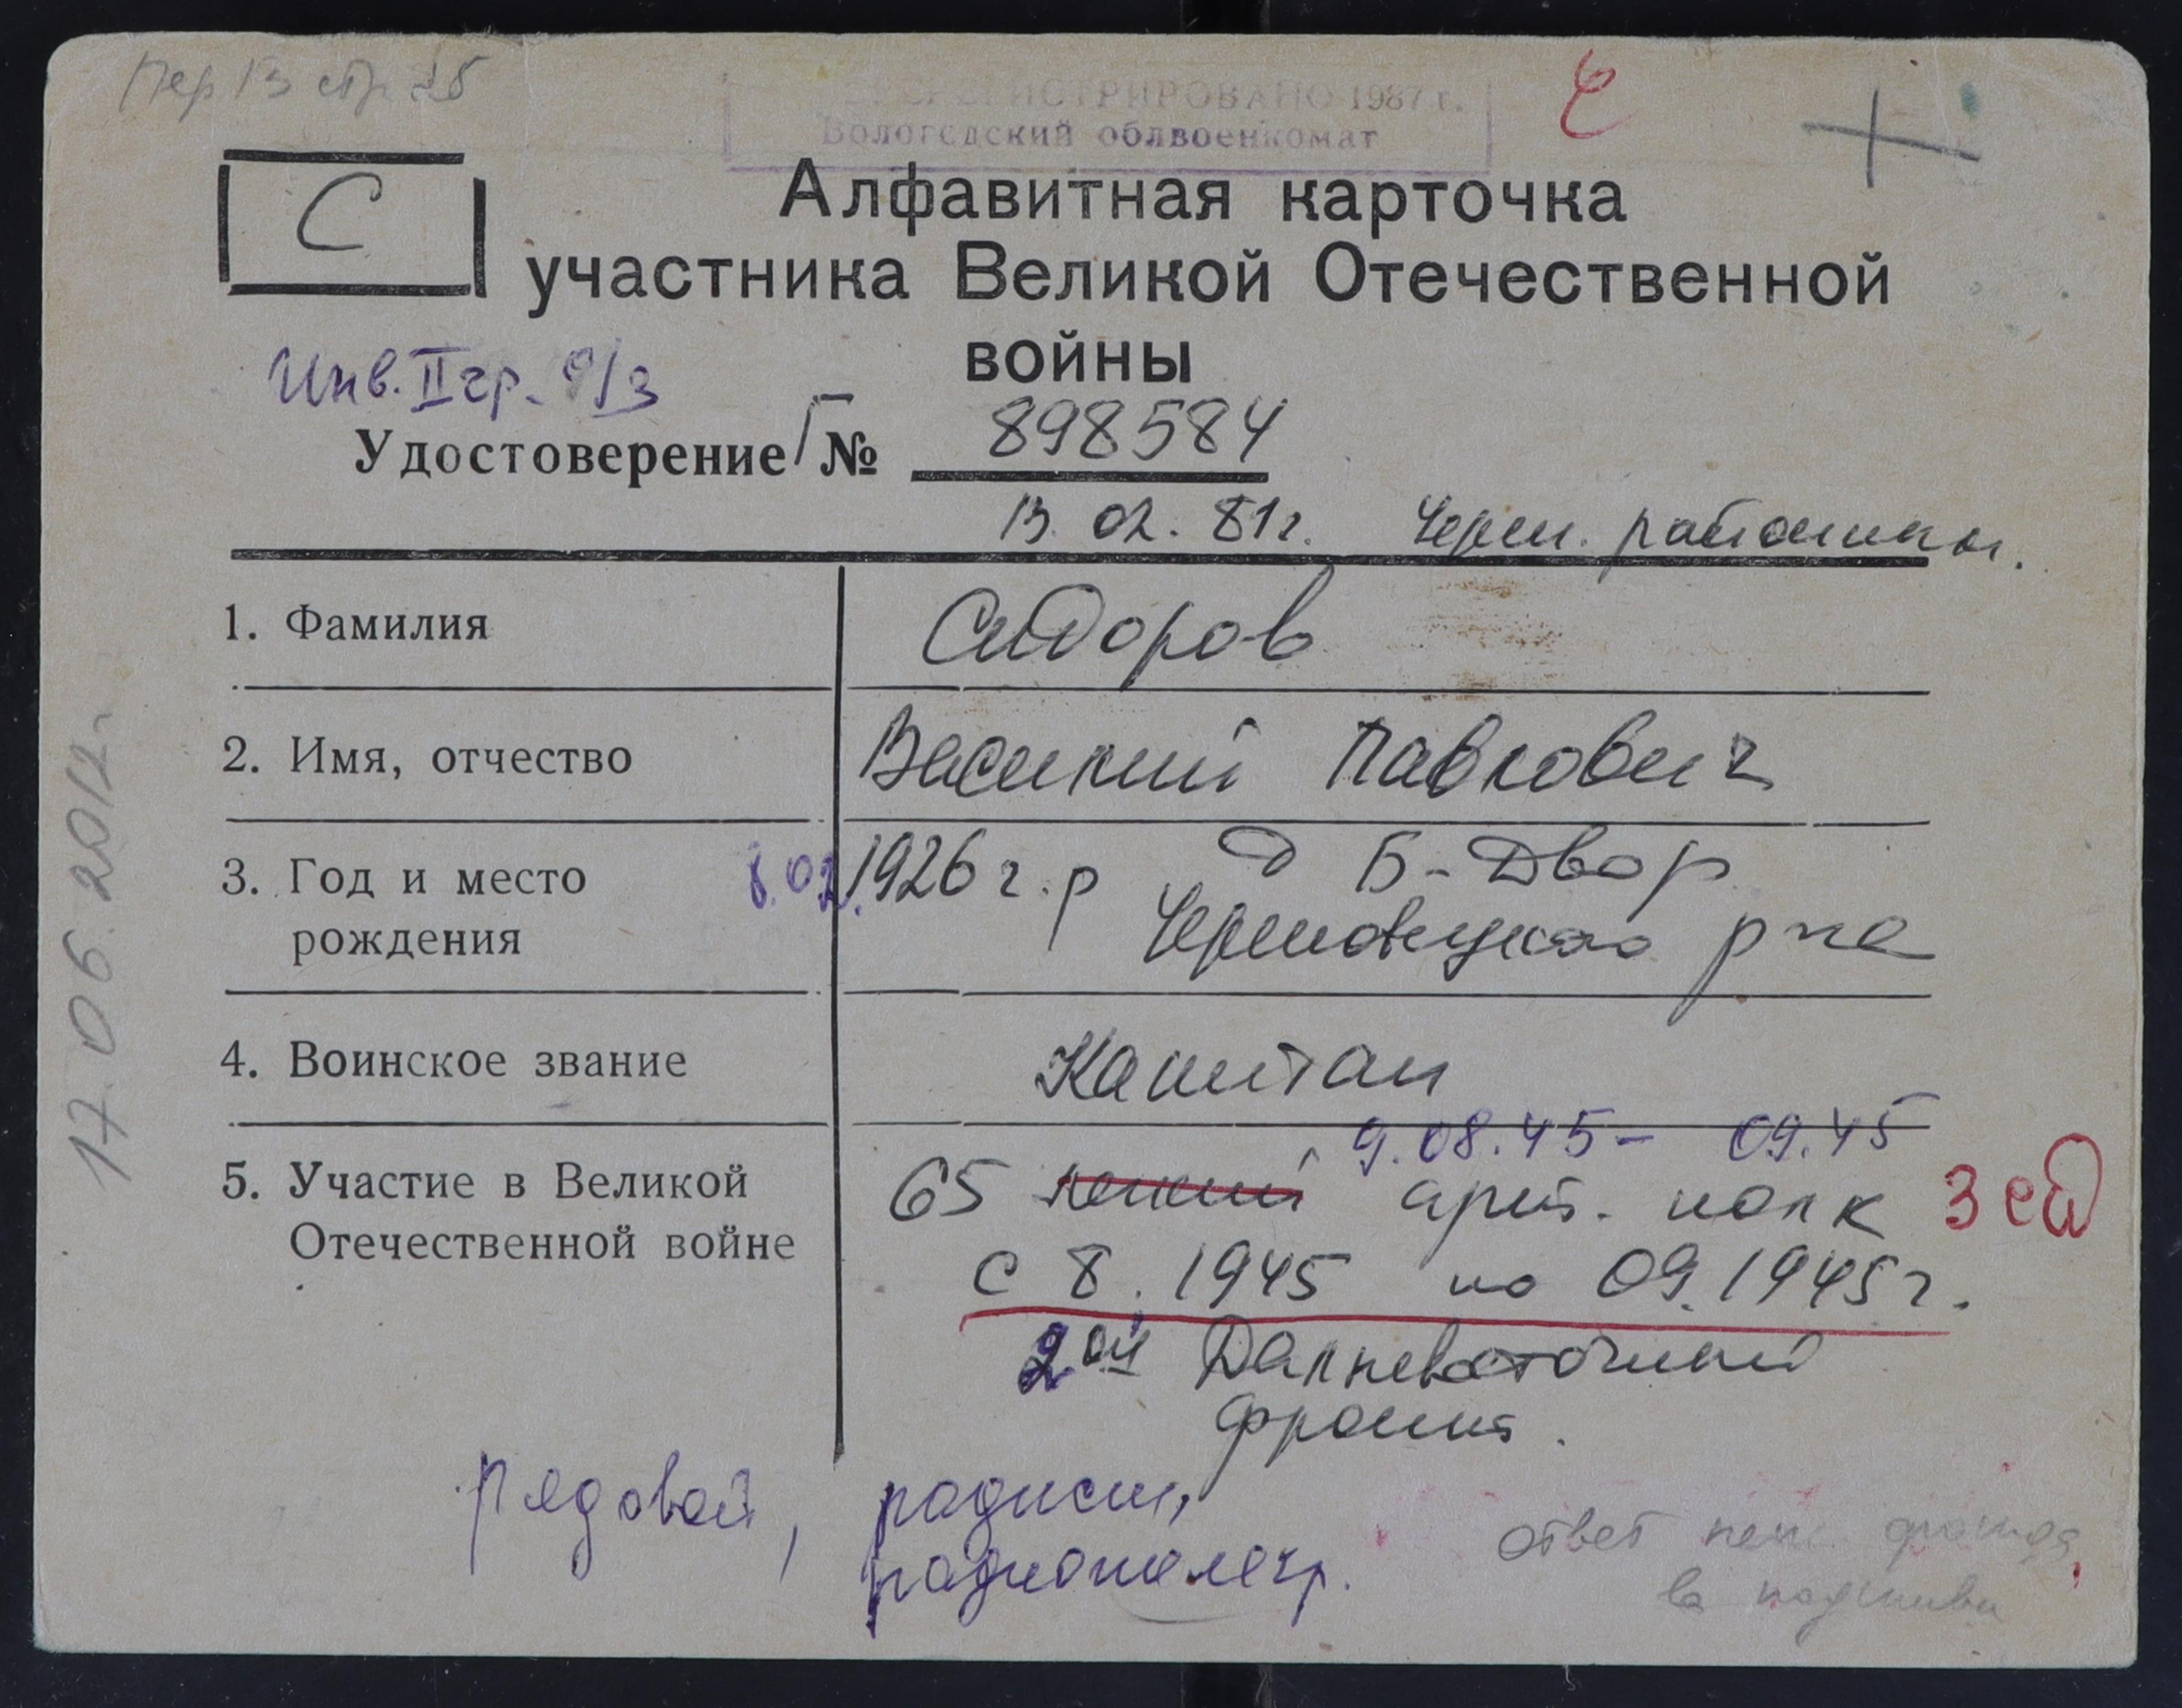 Пер 13 стр 25
ПЕРЕРЕГИСТРИРОВАНО 1987 г.
Вологодский облвоенкомат
С
Алфавитная карточка
участника Великой Отечественной
войны
Инв. II гр. о/з
Удостоверение Г № 898584
13. 02. 81г. Череп. райвоенком.
1. Фамилия Сидоров
2. Имя, отчество Василий Павлович
3. Год и место рождения 8.02.1926 г.р д Б-Двор
Череповецкого р-на
4. Воинское звание Капитан
9.08.45 - 09.45
5. Участие в Великой Отечественной войне 65 арт. полк 3 ед
с 8. 1945 по 09.1945 г.
2ой Дальневосточный
фронт.
рядовой, радист,
радиотелегр.
ответ
в подшивке
17.06.2012г